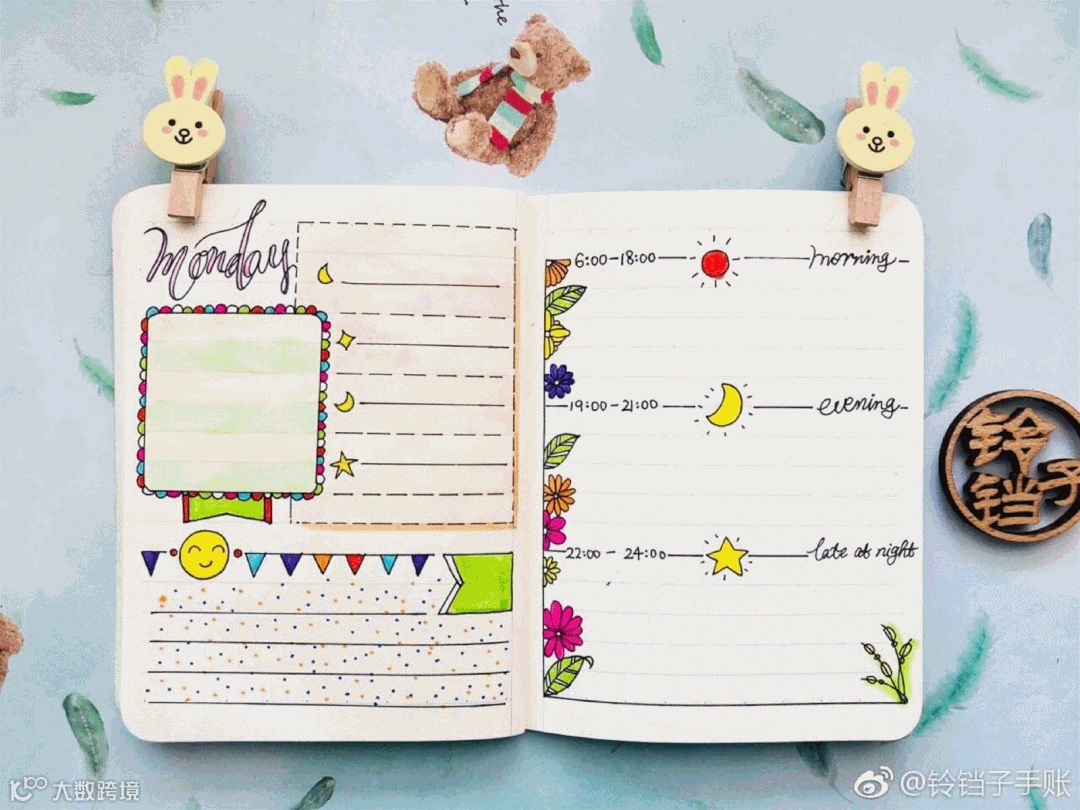 the
Monday
6:00-18:00 morning
19:00-21:00 evening
22:00 - 24:00 late at night
铃铛子
大数跨境
@铃铛子手账